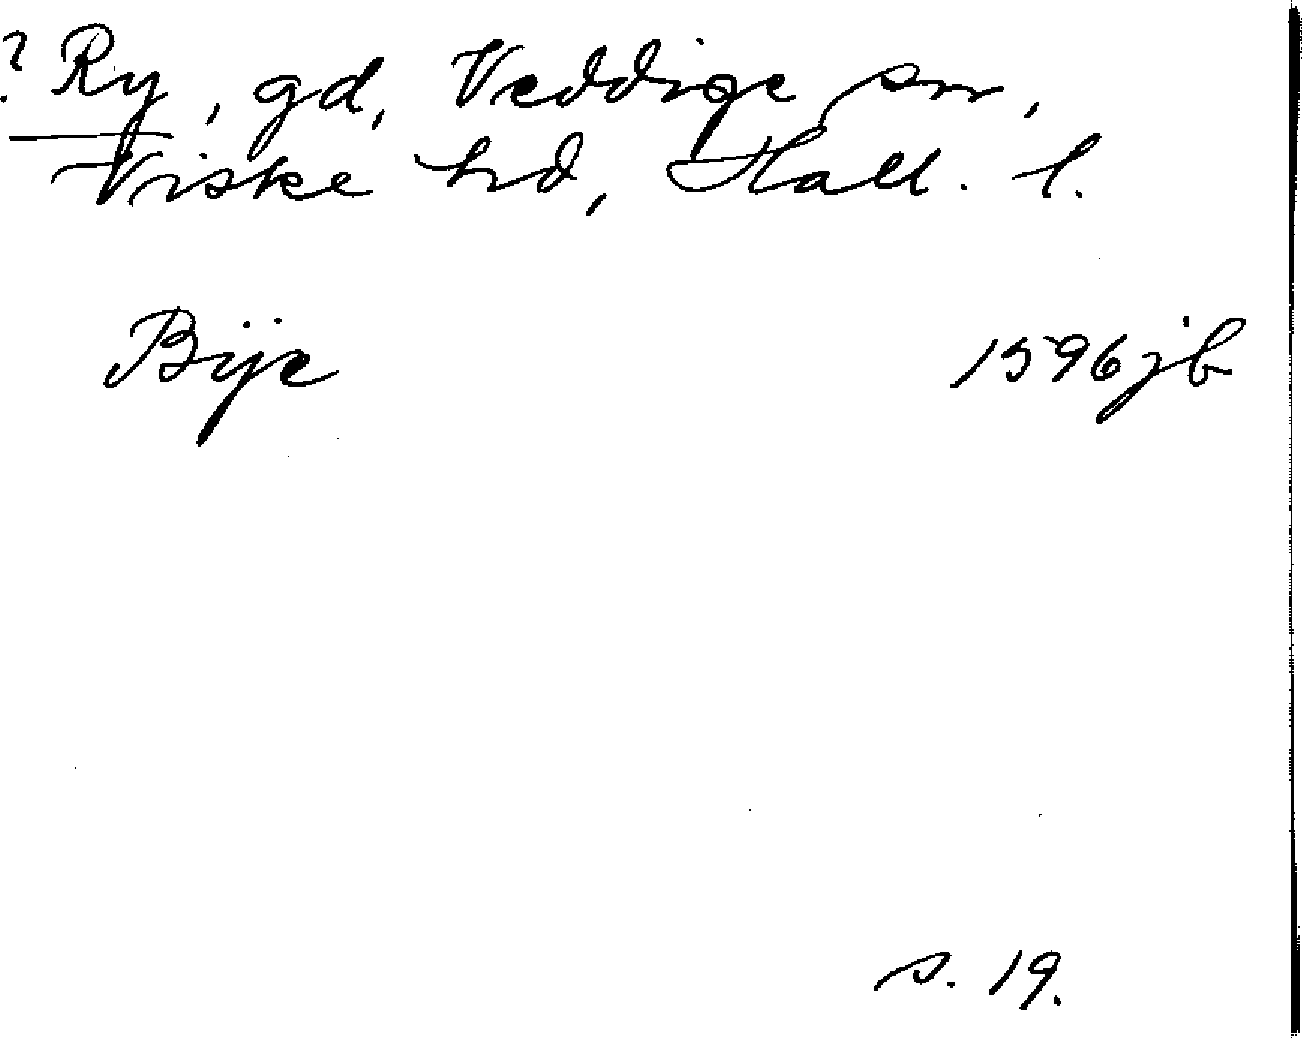 ? Ry, gd, Veddige sn,
Viske hd, Hall. l.
Bije 1596 jb
s. 19.